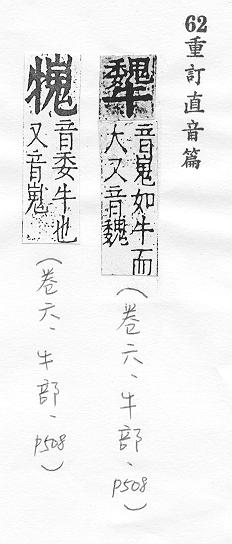 62重訂直音篇
犩
音嵬如牛而
大又音魏
（卷六、牛部、p508）
音委牛也
又音嵬
（卷六、牛部、p508）